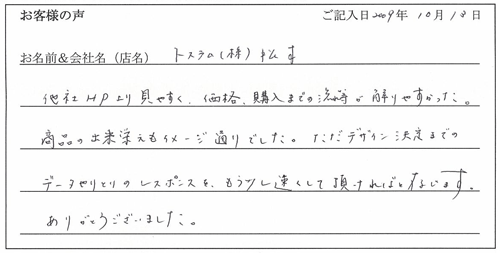 お客様の声 ご記入日2009年 10月 13日
お名前&会社名(店名) トスラム(株)
他社HPより見やすく、価格、購入までの流等が解りやすかった。
商品の出来栄えもイメージ通りでした。ただデザイン決定までの
データやりとりのレスポンスを、もう少し速くして頂ければと存じます。
ありがとうございました。